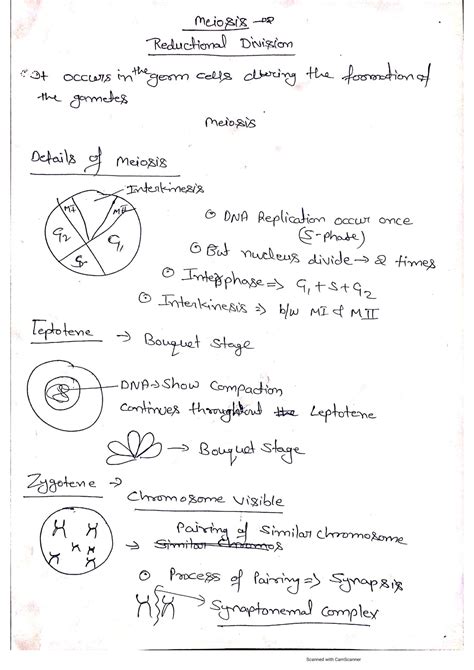 Meiosis → or
Reductional Division
It occurs in the germ cells during the formation of
the gametes
Meiosis
Details of Meiosis
Interkinesis
MI MII
G2 G1
S
DNA Replication occur once
(S-phase)
But nucleus divide → 2 times
Interphase => G1 + S + G2
Interkinesis => b/w MI & MII
Leptotene → Bouquet Stage
DNA → Show Compaction
Continues throughout the Leptotene
→ Bouquet Stage
Zygotene →
Chromosome Visible
Pairing of Similar Chromosome
→ Similar Chromos
Process of Pairing => Synapsis
Synaptonemal Complex
Scanned with CamScanner